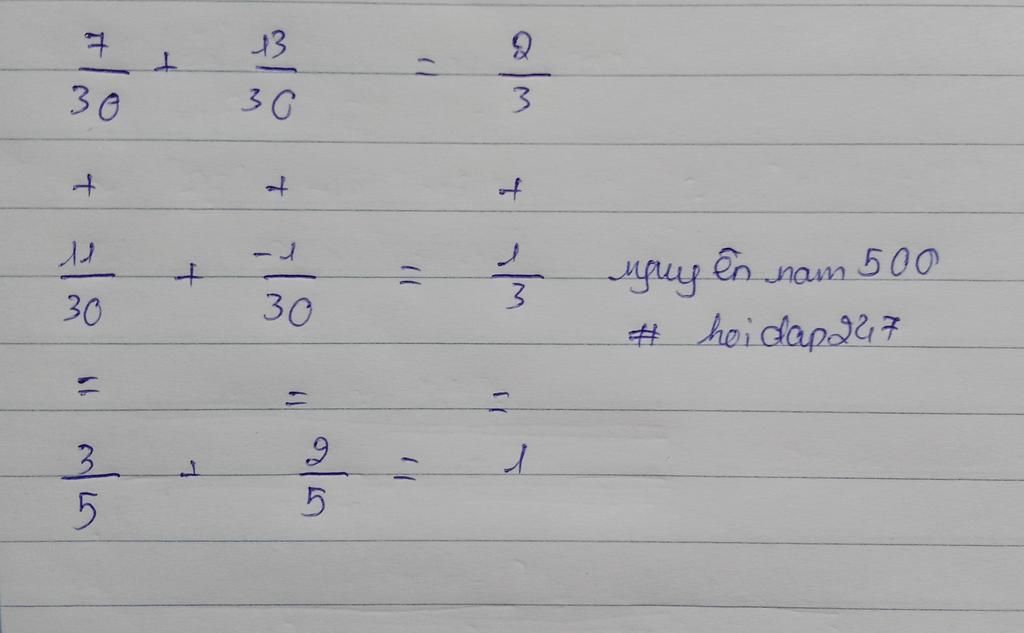 7/30 + 13/30 = 2/3
+ + +
11/30 + -1/30 = 1/3 nguyễn nam 500
# hoidap247
= = =
3/5 + 2/5 = 1